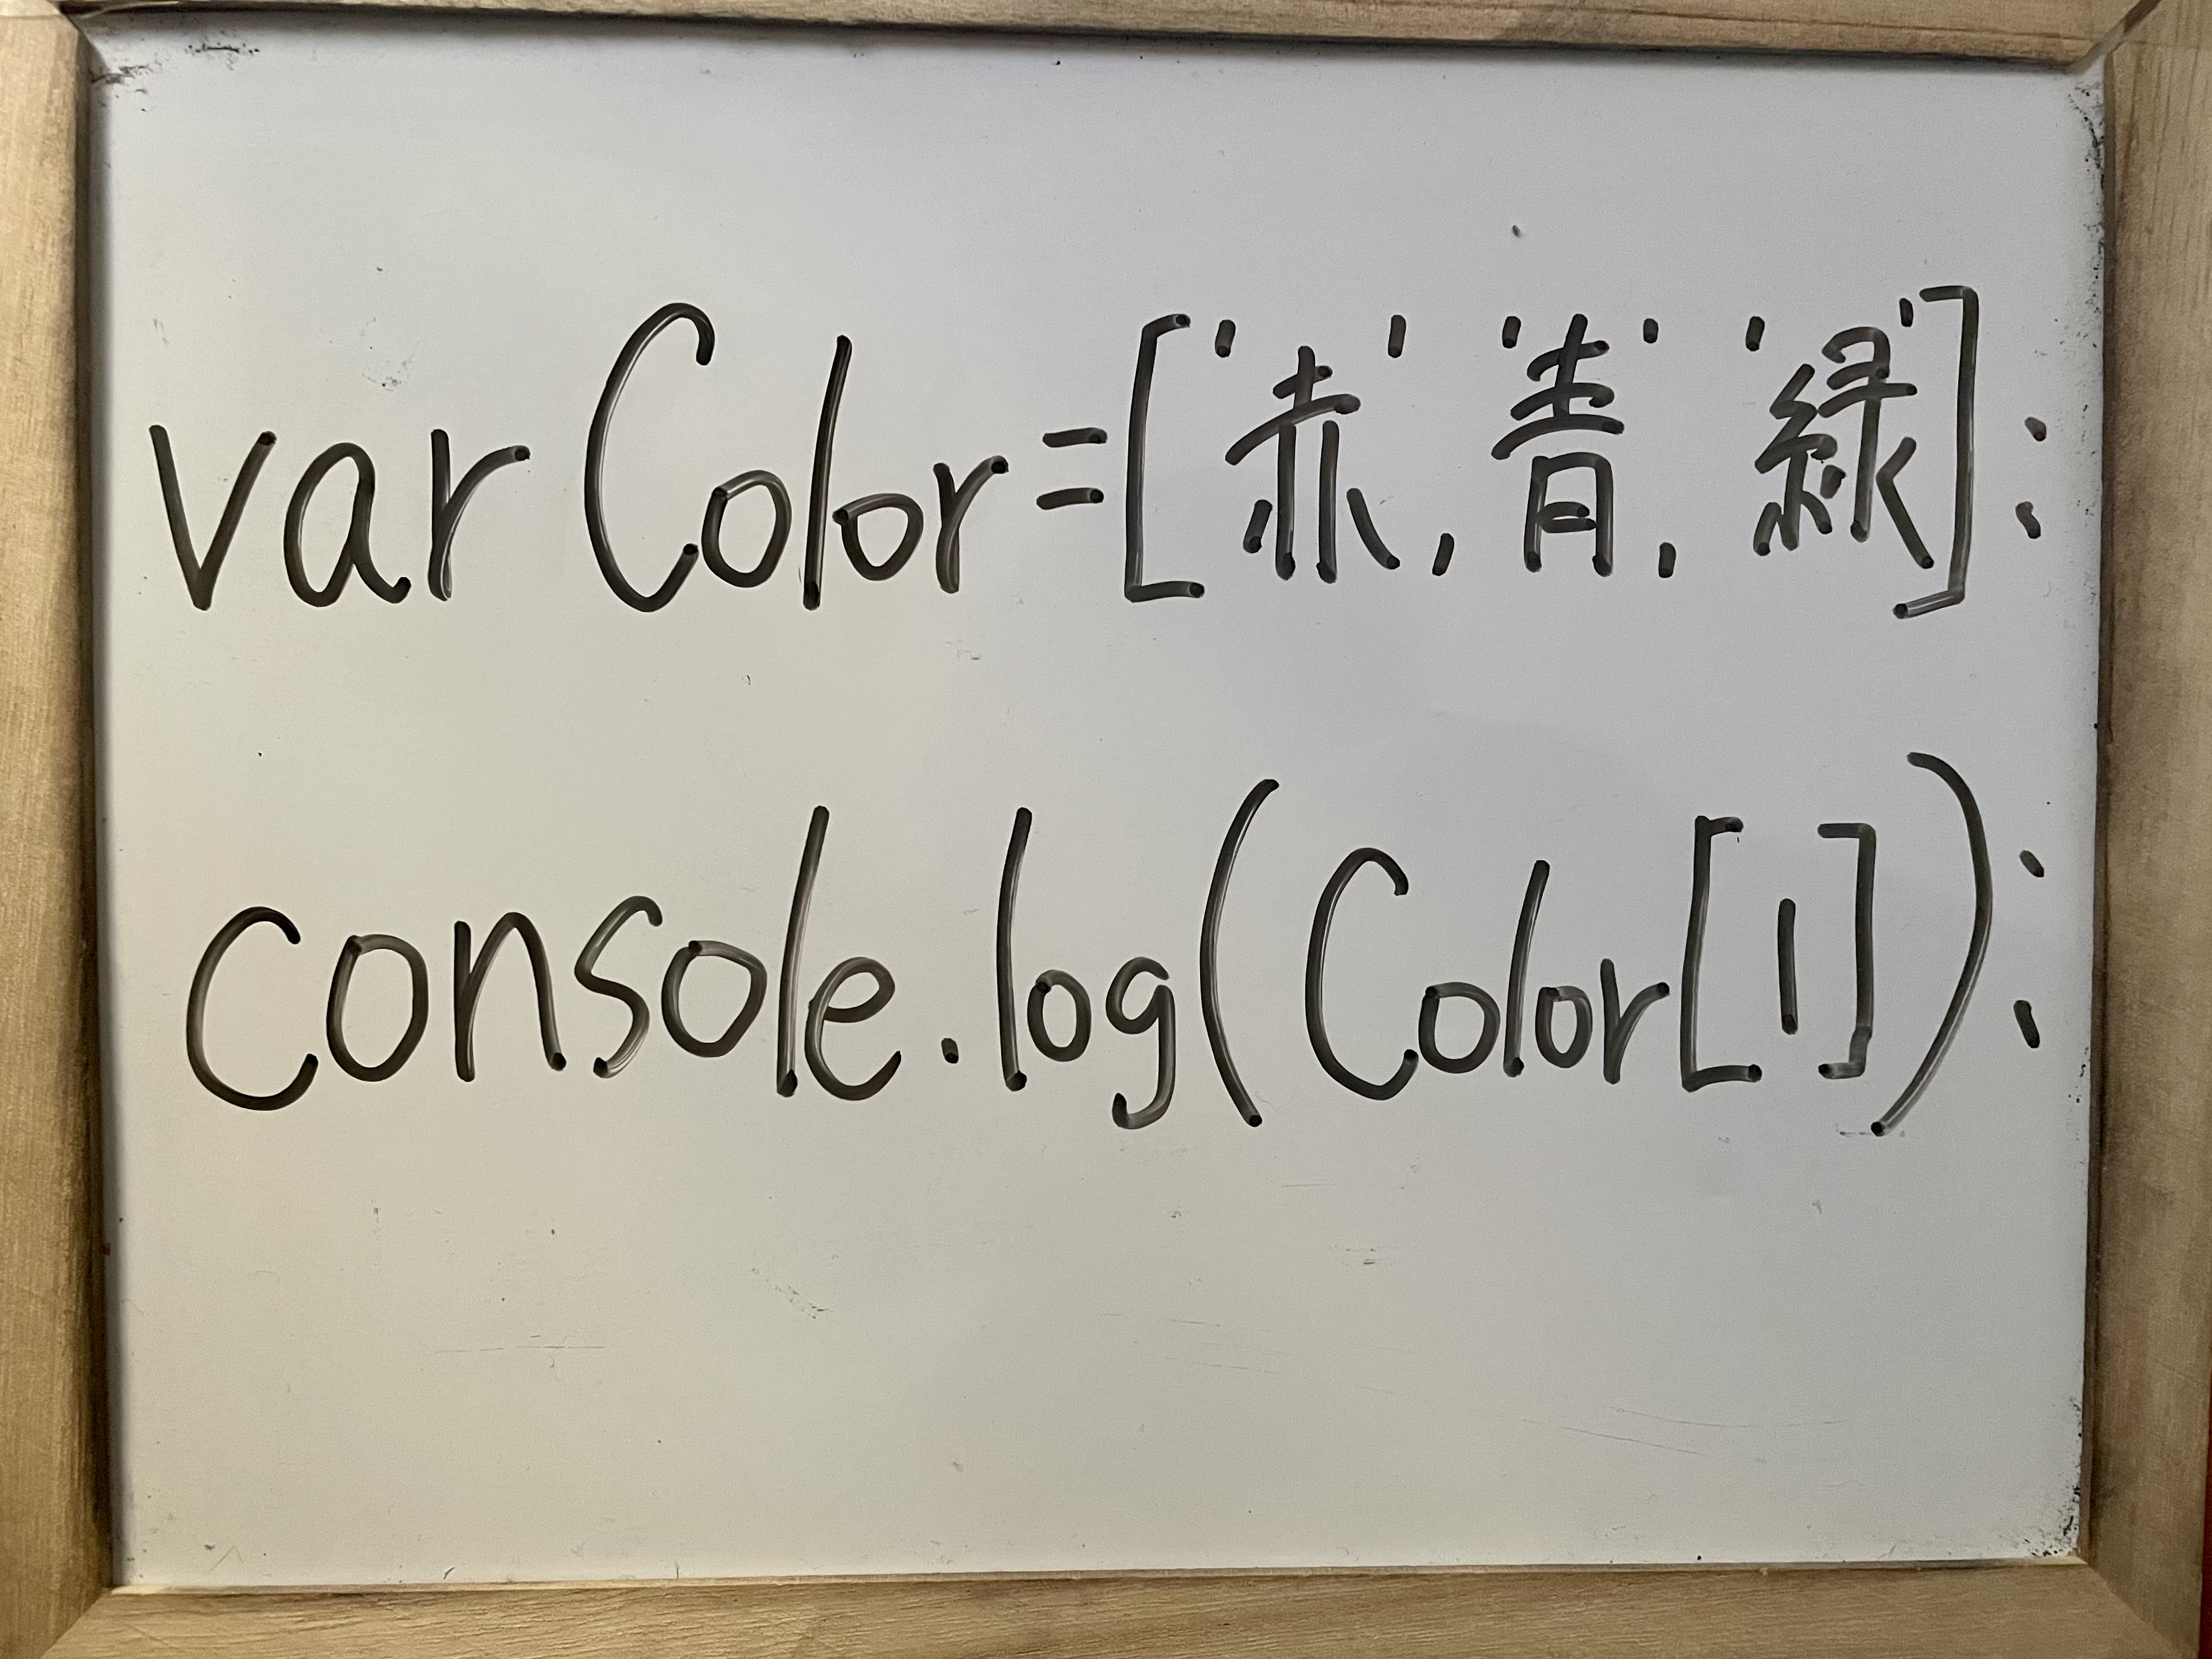 var Color=['赤','青','緑'];
console.log(Color[1]);